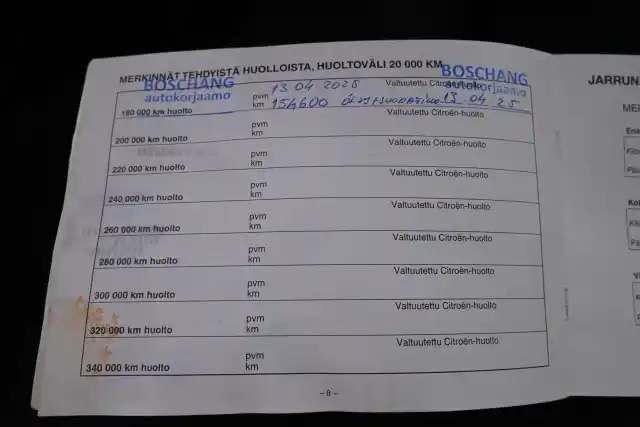 MERKINNÄT TEHDYISTÄ HUOLLOISTA, HUOLTOVÄLI 20 000 KM
BOSCHANG
autokorjaamo
180 000 km huolto
pvm 13 04 2025
km 154600
Valtuutettu Citroën-huolto
BOSCHANG
autokorjaamo
13.04.25
200 000 km huolto
pvm
km
Valtuutettu Citroën-huolto
220 000 km huolto
pvm
km
Valtuutettu Citroën-huolto
240 000 km huolto
pvm
km
Valtuutettu Citroën-huolto
260 000 km huolto
pvm
km
Valtuutettu Citroën-huolto
280 000 km huolto
pvm
km
Valtuutettu Citroën-huolto
300 000 km huolto
pvm
km
Valtuutettu Citroën-huolto
320 000 km huolto
pvm
km
Valtuutettu Citroën-huolto
340 000 km huolto
pvm
km
Valtuutettu Citroën-huolto
– 8 –
JARRUN